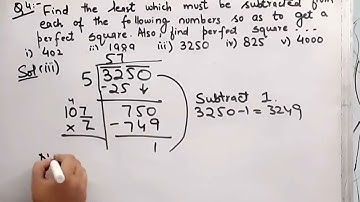 Q4:- Find the least which must be subtracted from
each of the following numbers so as to get a
perfect square. Also, find perfect square
i) 402 ii) 1989 iii) 3250 iv) 825 v) 4000
Sol (iii)
57
5 3250
-25 ↓
107 750
x 7 -749
1
Subtract 1.
3250-1=3249